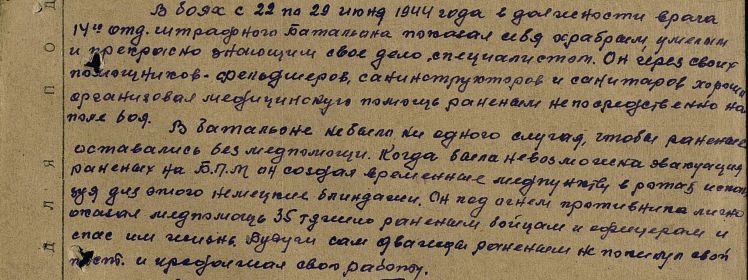 В боях с 22 по 29 июня 1944 года в должности врача
14го отд. штрафного батальона показал себя храбрым, умелым
и прекрасно знающим свое дело, специалистом. Он через своих
помощников - фельдшеров, санинструкторов и санитаров хорошо
организовал медицинскую помощь раненым непосредственно на
поле боя.
В батальоне не было ни одного случая, чтобы раненые
оставались без медпомощи. Когда была невозможна эвакуация
раненых на Б.П.М он создал временные медпункты в ротах исполь
зуя для этого немецкие блиндажи. Он под огнем противника лично
оказал медпомощь 35 тяжело раненым бойцам и офицерам и
спас им жизнь. Будучи сам дважды раненым не покинул свой
пост. и продолжал свою работу.
ДЛЯ ПОД